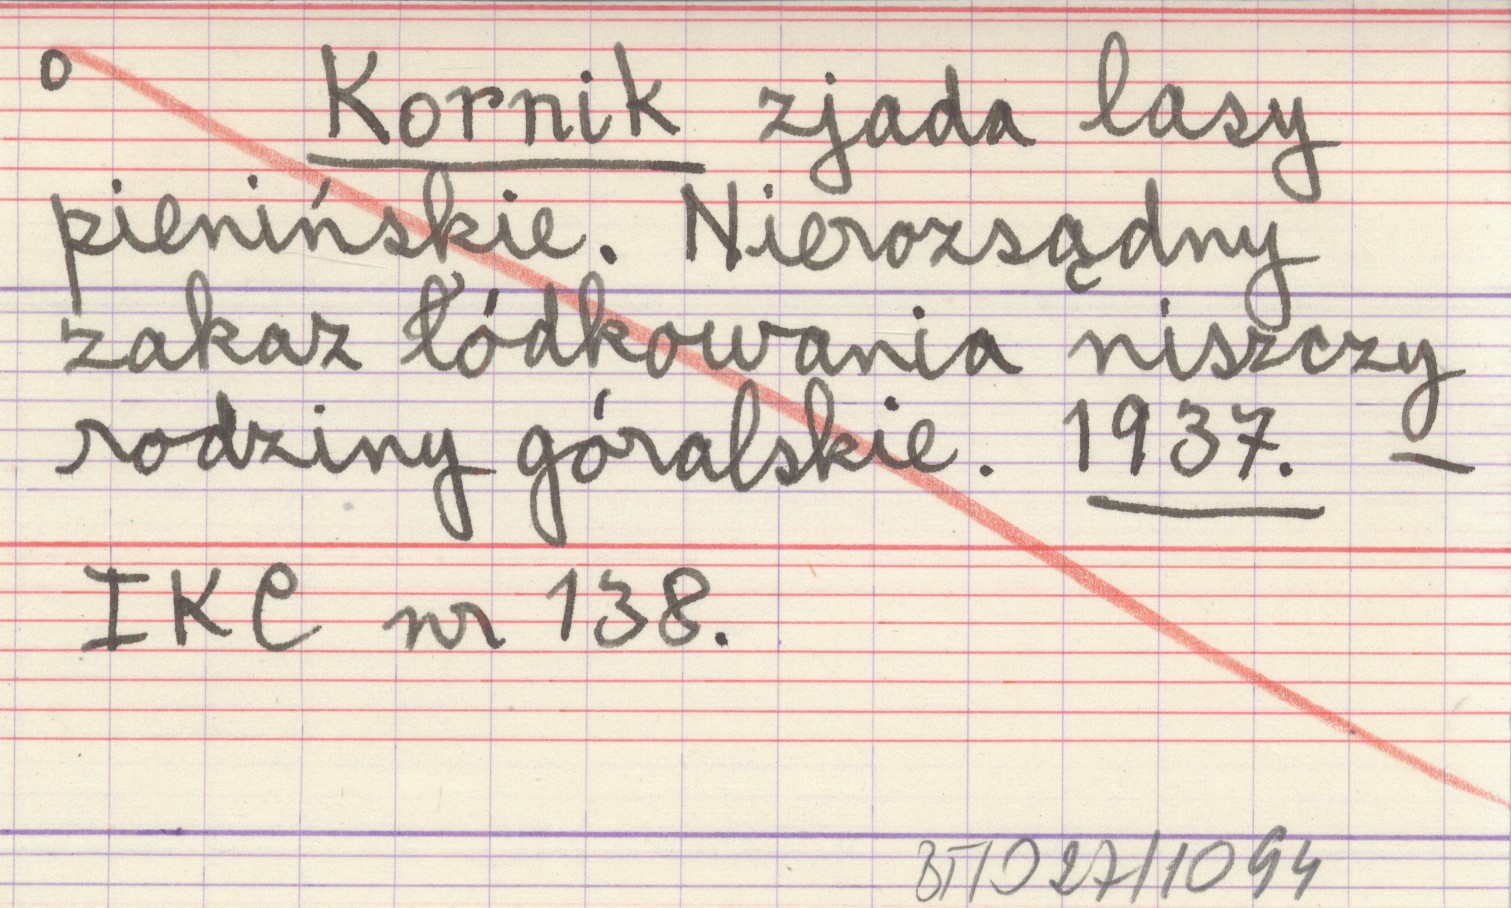 o Kornik zjada lasy
pienińskie. Nierozsądny
zakaz łódkowania niszczy
rodziny góralskie. 1937. –
IKC nr 138.
BT/O 27/1094